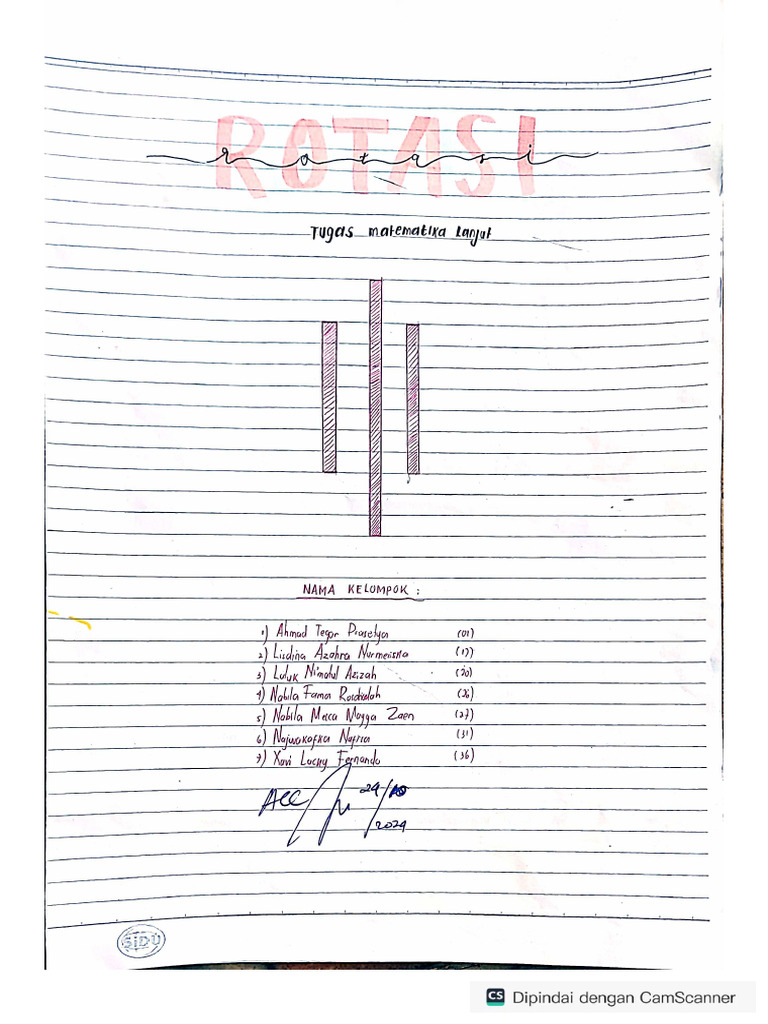 ROTASI
rotasi
Tugas matematika lanjut
NAMA KELOMPOK :
1) Ahmad Tegar Prasetya (01)
2) Lisdina Azahra (17)
3) Luluk Ni'matul Azizah (20)
4) Nabila Fama (26)
5) Nabila Mecca Mayga Zaen (27)
6) (31)
7) Xavi Lucky Fernando (36)
ACC 29/10
2024
SIDU
CS Dipindai dengan CamScanner